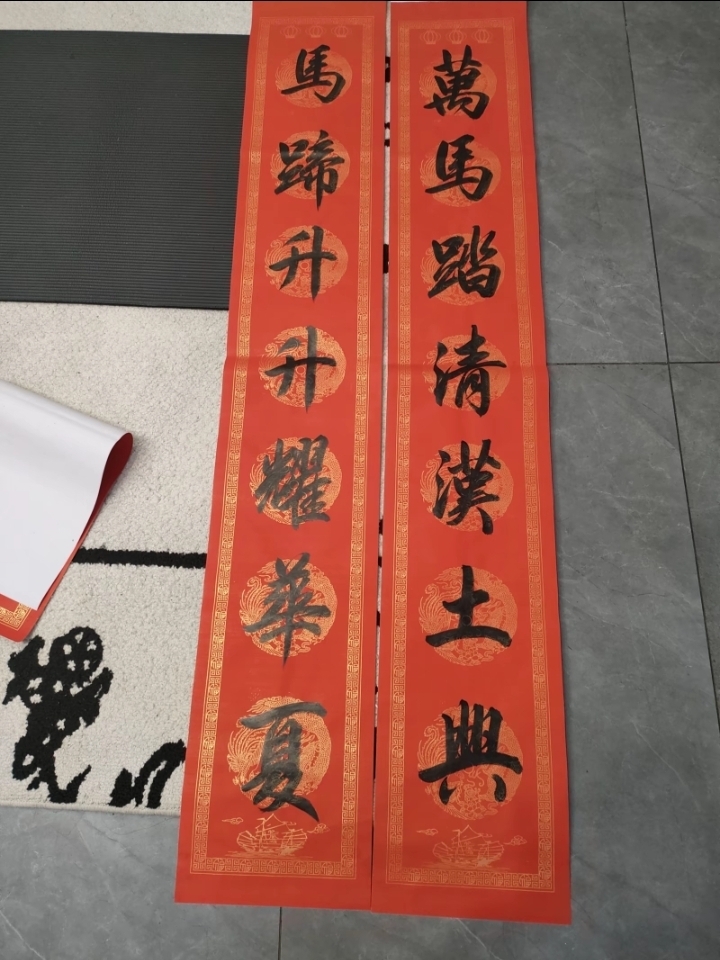 萬馬踏清漢土興
馬蹄升升耀華夏